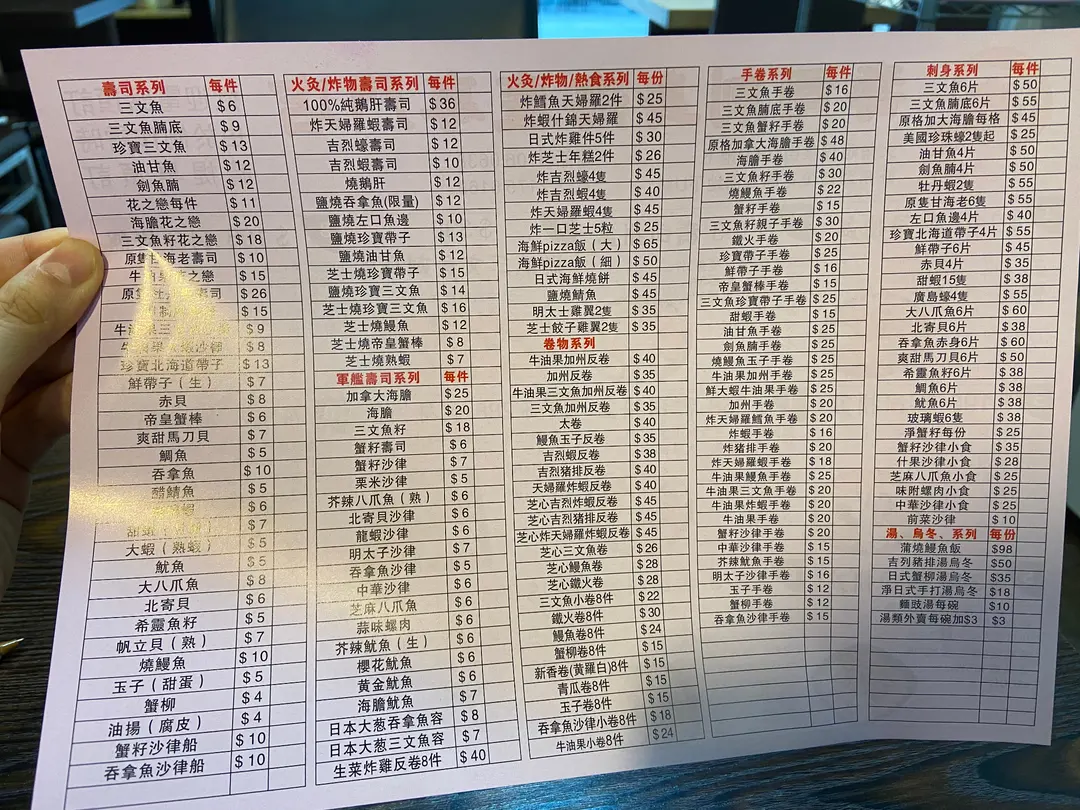 壽司系列 每件
三文魚 $6
三文魚腩底 $9
珍寶三文魚 $13
油甘魚 $12
劍魚腩 $12
花之戀每件 $11
海膽花之戀 $20
三文魚籽花之戀 $18
原隻 海老壽司 $10
牛 之戀 $15
原隻牡丹 壽司 $26
$15
牛油果三文 $9
蝦沙律 $9
珍寶北海道帶子 $13
鮮帶子（生） $7
赤貝 $8
帝皇蟹棒 $6
爽甜馬刀貝 $7
鯛魚 $5
吞拿魚 $10
醋鯖魚 $5
蝦 $6
甜蝦 $7
大蝦（熟蝦） $5
魷魚 $5
大八爪魚 $8
北寄貝 $6
希靈魚籽 $5
帆立貝（熟） $7
燒鰻魚 $10
玉子（甜蛋） $5
蟹柳 $4
油揚（腐皮） $4
蟹籽沙律船 $10
吞拿魚沙律船 $10
火灸/炸物壽司系列 每件
100%純鵝肝壽司 $36
炸天婦羅蝦壽司 $12
吉烈蠔壽司 $12
吉烈蝦壽司 $10
燒鵝肝 $12
鹽燒吞拿魚(限量) $12
鹽燒左口魚邊 $10
鹽燒珍寶帶子 $13
鹽燒油甘魚 $12
芝士燒珍寶帶子 $15
鹽燒珍寶三文魚 $14
芝士燒珍寶三文魚 $16
芝士燒鰻魚 $12
芝士燒帝皇蟹棒 $8
芝士燒熟蝦 $7
軍艦壽司系列 每件
加拿大海膽 $25
海膽 $20
三文魚籽 $18
蟹籽壽司 $6
蟹籽沙律 $7
栗米沙律 $5
芥辣八爪魚（熟） $6
北寄貝沙律 $6
龍蝦沙律 $6
明太子沙律 $7
吞拿魚沙律 $5
中華沙律 $6
芝麻八爪魚 $6
蒜味螺肉 $6
芥辣魷魚（生） $6
櫻花魷魚 $6
黃金魷魚 $6
海膽魷魚 $7
日本大葱吞拿魚容 $8
日本大葱三文魚容 $7
生菜炸雞反卷8件 $40
火灸/炸物/熱食系列 每份
炸鱈魚天婦羅2件 $25
炸蝦什錦天婦羅 $45
日式炸雞件5件 $30
炸芝士年糕2件 $26
炸吉烈蠔4隻 $45
炸吉烈蝦4隻 $40
炸天婦羅蝦4隻 $45
炸一口芝士5粒 $25
海鮮pizza飯（大） $65
海鮮pizza飯（細） $50
日式海鮮燒餅 $45
鹽燒鯖魚 $45
明太士雞翼2隻 $35
芝士餃子雞翼2隻 $35
卷物系列
牛油果加州反卷 $40
加州反卷 $35
牛油果三文魚加州反卷 $40
三文魚加州反卷 $35
太卷 $40
鰻魚玉子反卷 $35
吉烈蝦反卷 $38
吉烈豬排反卷 $40
天婦羅炸蝦反卷 $40
芝心吉烈炸蝦反卷 $45
芝心吉烈豬排反卷 $45
芝心炸天婦羅炸蝦反卷 $45
芝心三文魚卷 $26
芝心鰻魚卷 $28
芝心鐵火卷 $28
三文魚小卷8件 $22
鐵火卷8件 $30
鰻魚卷8件 $24
蟹柳卷8件 $15
新香卷(黃羅白)8件 $15
青瓜卷8件 $15
玉子卷8件 $15
吞拿魚沙律小卷8件 $18
牛油果小卷8件 $24
手卷系列 每件
三文魚手卷 $16
三文魚腩底手卷 $20
三文魚蟹籽手卷 $20
原格加拿大海膽手卷 $48
海膽手卷 $40
三文魚籽手卷 $30
燒鰻魚手卷 $22
蟹籽手卷 $15
三文魚籽親子手卷 $30
鐵火手卷 $20
珍寶帶子手卷 $25
鮮帶子手卷 $16
帝皇蟹棒手卷 $15
三文魚珍寶帶子手卷 $25
甜蝦手卷 $15
油甘魚手卷 $25
劍魚腩手卷 $25
燒鰻魚玉子手卷 $25
牛油果加州手卷 $25
鮮大蝦牛油果手卷 $25
加州手卷 $20
炸天婦羅鱈魚手卷 $20
炸蝦手卷 $16
炸豬排手卷 $20
炸天婦羅蝦手卷 $18
牛油果鰻魚手卷 $25
牛油果三文魚手卷 $20
牛油果炸蝦手卷 $20
牛油果手卷 $20
蟹籽沙律手卷 $20
中華沙律手卷 $15
芥辣魷魚手卷 $15
明太子沙律手卷 $16
玉子手卷 $12
蟹柳手卷 $12
吞拿魚沙律手卷 $15
刺身系列 每件
三文魚6片 $50
三文魚腩底6片 $55
原格加大海膽每格 $45
美國珍珠蠔2隻起 $25
油甘魚4片 $50
劍魚腩4片 $50
牡丹蝦2隻 $55
原隻甘海老6隻 $55
左口魚邊4片 $40
珍寶北海道帶子4片 $55
鮮帶子6片 $45
赤貝4片 $35
甜蝦15隻 $38
廣島蠔4隻 $55
大八爪魚6片 $60
北寄貝6片 $38
吞拿魚赤身6片 $60
爽甜馬刀貝6片 $50
希靈魚籽6片 $38
鯛魚6片 $38
魷魚6片 $38
玻璃蝦6隻 $38
淨蟹籽每份 $25
蟹籽沙律小食 $35
什果沙律小食 $28
芝麻八爪魚小食 $25
味附螺肉小食 $25
中華沙律小食 $25
前菜沙律 $10
湯、烏冬、系列 每份
蒲燒鰻魚飯 $98
吉列豬排湯烏冬 $50
日式蟹柳湯烏冬 $35
淨日式手打湯烏冬 $18
麵豉湯每碗 $10
湯類外賣每碗加$3 $3